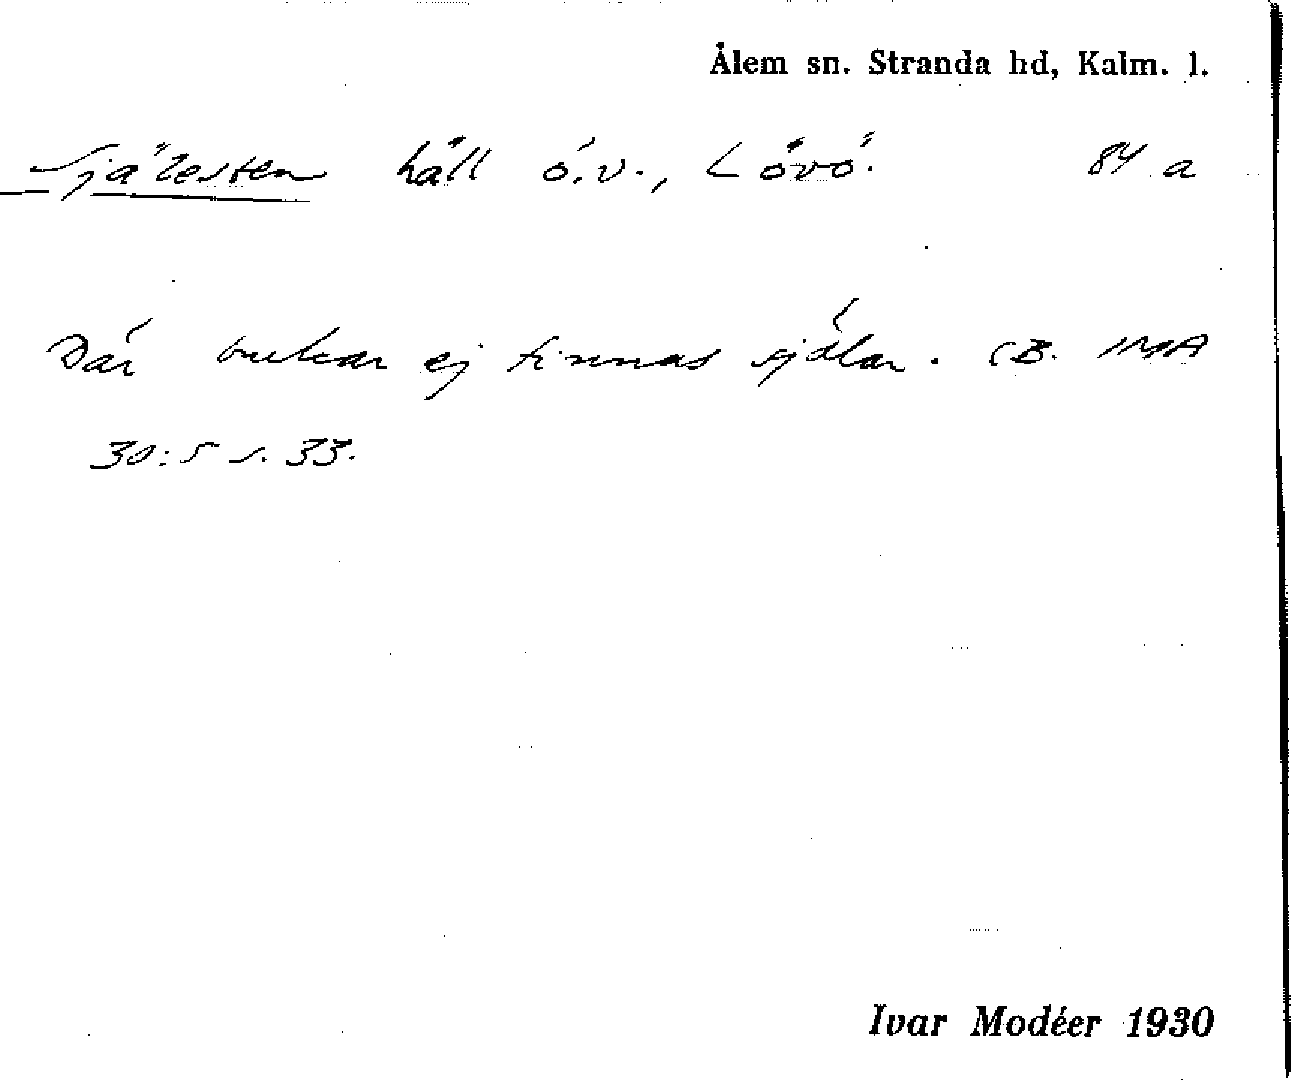 Ålem sn. Stranda hd, Kalm. l.
Själesten häll ö.v., Lövö. 84 a
Där brukar ej finnas sjöar. CB. IMA
30:5 s. 33.
Ivar Modéer 1930